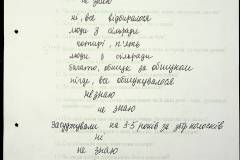 не знаю
ні, все відбиралося
люди з сільради
чотирі, п'ять
люди з сільради
багато, обшук за обшуком
нігде, все обшукувалося
незнаю
не знаю
Засуджували на 3-5 років за збір колосків
ні
не знаю